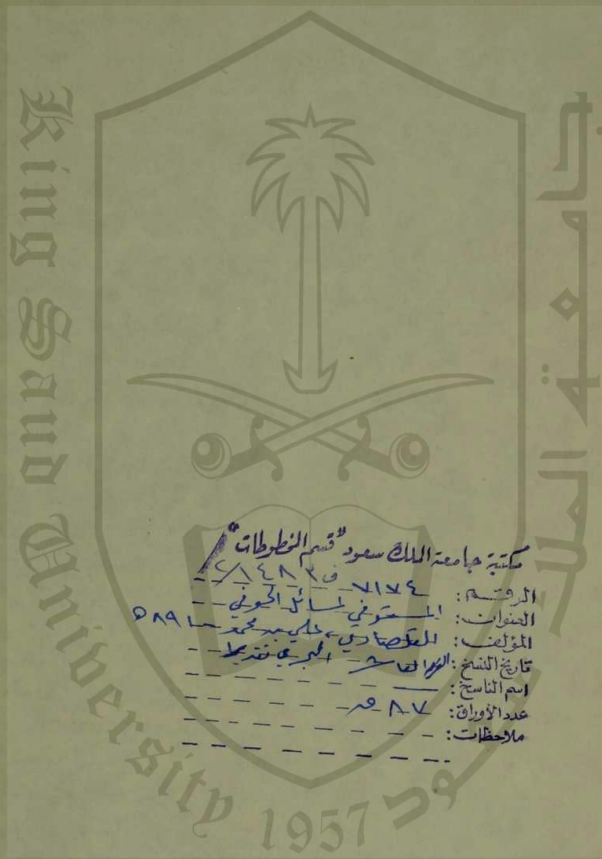 King Saud University
جامعة الملك سعود
1957
مكتبة جامعة الملك سعود "قسم المخطوطات"
الرقم: ٧١٧٤ ف ١٤٨٣/٢
العنوان: المستوفي لمسائل الحوفي
المؤلف: القلصادي، علي بن محمد - ٨٩١ ه
تاريخ النسخ: القرن العاشر الهجري تقديرا
اسم الناسخ:
عدد الأوراق: ٨٧ ق
ملاحظات: